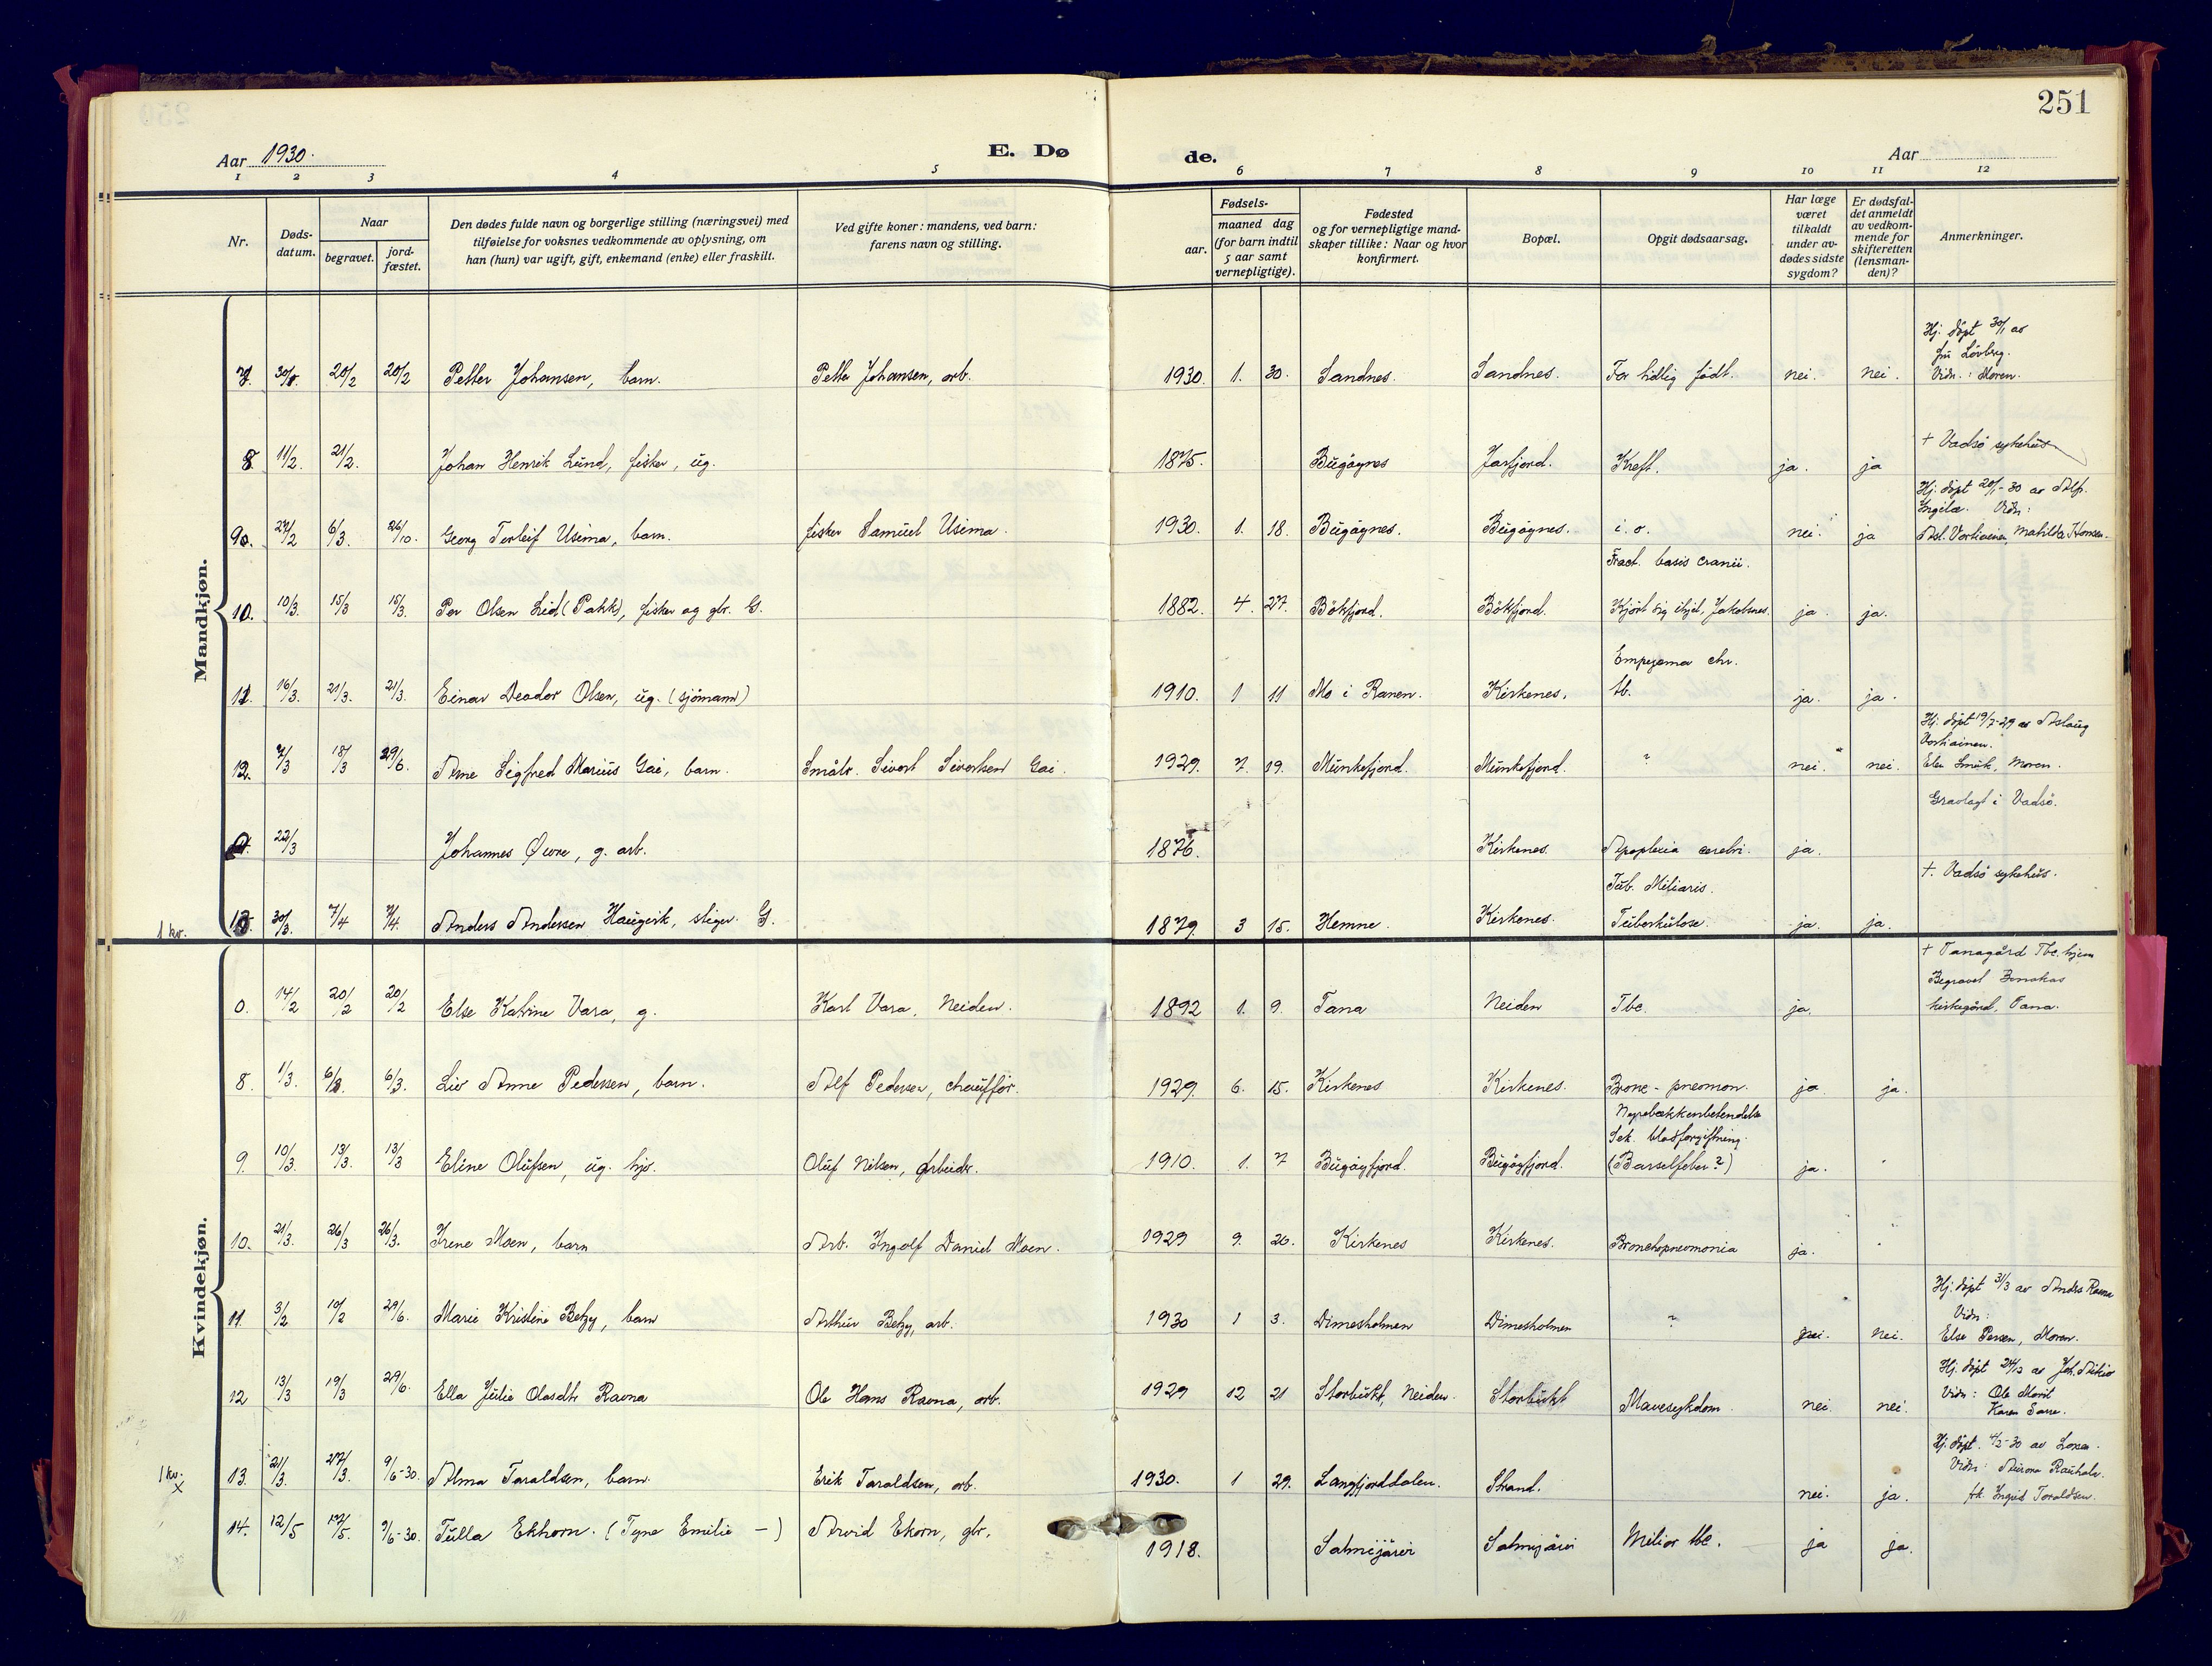 251
Aar 1930.
E. Dø de.
Aar
1 2 3 4 5 6 7 8 9 10 11 12
Nr.
Døds-
datum.
Naar
begravet.
jord-
fæstet.
Den dødes fulde navn og borgerlige stilling (næringsvei) med
tilføielse for voksnes vedkommende av oplysning, om
han (hun) var ugift, gift, enkemand (enke) eller fraskilt.
Ved gifte koner: mandens, ved barn:
farens navn og stilling.
Fødsels-
aar.
maaned dag
(for barn indtil
5 aar samt
vernepligtige).
Fødested
og for vernepligtige mand-
skaper tillike: Naar og hvor
konfirmert.
Bopæl.
Opgit dødsaarsag.
Har læge
været
tilkaldt
under av-
dødes sidste
sygdom?
Er dødsfal-
det anmeldt
av vedkom-
mende for
skifteretten
(lensman-
den)?
Anmerkninger.
Mandkjøn.
Hj. døpt 30/1 av
fru Lövberg.
7. 20/2 20/2 Petter Johansen, barn. Petter Johansen, arb. 1930. 1. 30. Sandnes. Sandnes. For tidlig født. nei. nei. Vidn.: Moren.
† Vadsö sykehus
8. 11/2. 21/2. Johan Henrik Lund, fisker, ug. 1875. Bugöynes Jarfjord. Kreft. ja. ja
Hj. döpt 20/1-30 av Alfr.
Vidn:
9. 27/2 6/3. 26/10. Georg Torleif Usima, barn. fisker Samuel Usima. 1930. 1. 18. Bugöynes. Bugöynes. i. o. nei. ja Asl. Vartiainen, Matilda Hansen.
Fract. basis cranii.
10. 10/3. 15/3 15/3. Per Olsen Lid (Pakk), fisker og gbr. G. 1882. 4. 27. Bökfjord. Bökfjord. Kjørt sig ihjel, Jakobsnes. ja. ja.
Empyema chr.
11. 16/3. 21/3. 21/3. Einar Deodor Olsen, ug. (sjömann) 1910. 1 11 Mo i Ranen. Kirkenes. tb. ja. ja.
Hj. döpt 19/7-29 av Aslaug
Vartiainen.
12. 7/3 18/3 29/6. Arne Sigfred Marius Gai, barn. Småbr. Sivert Sivertsen Gai. 1929. 7. 19. Munkefjord. Munkefjord. ? nei. nei. Elen Smuk, Moren.
Gravlagt i Vadsö.
22/3 Johannes Øvre, g. arb. 1876. Kirkenes. Apoplexia cerebri. ja.
Tub. Miliaris.
† Vadsö sykehus.
1 kv. 13. 30/3. 7/4 7/4. Anders Andersen Haugvik, stiger. G. 1879. 3 15. Hemne. Kirkenes. Tuberkulose. ja. ja.
Kvindekjøn.
† Tanagård Tbc. hjem
Begravet
0. 14/2 20/2 20/2 Else Katrine Vara, g. Karl Vara, Neiden. 1892 1. 9. Tana Neiden Tbc. ja. kirkegård, Tana.
8. 1/3. 6/3. 6/3. Liv Anne Pedersen, barn. Alf Pedersen, chauffør. 1929. 6. 15. Kirkenes Kirkenes. Bronc-pneomon. ja ja.
Nyrebækkenbetendelse
Sek. blodforgiftning.
9. 10/3. 13/3. 13/3 Eline Olufsen, ug. hjv. Oluf Nilsen, Arbeider. 1910. 1. 7 Bugöyfjord. Bugöyfjord. (Barselfeber?) ja.
10. 21/3. 26/3 26/3. Irene Moen, barn Arb. Ingolf Daniel Moen. 1929 9. 26. Kirkenes Kirkenes. Bronchopneomonia ja.
Hj. döpt 3/3 av Anders Ravna
Vidn:
11. 3/2 10/2 29/6. Marie Kristine Betzy, barn Arthur Betzy, arb. 1930 1 3. Dimesholmen Dimesholmen ? nei. nei. Else Persen, Moren.
Hj. döpt 24/12 av
Vidn: Ole Marit
12 13/3 19/3 29/6. Ella Julie Olasdtr Ravna Ole Hans Ravna, arb. 1929 12 21 Storbukt, Neiden. Storbukt Mavesykdom nei. nei. Karen Sarre.
Hj. döpt
Vidn:
1 kv. x 13. 21/3. 27/3. 9/6-30. Alma Taraldsen, barn. Erik Taraldsen, arb. 1930. 1 29. Langfjorddalen. Strand. nei. ja. fk. Ingrid Taraldsen.
14. 12/5 17/5. 9/6-30. Tulla Ekhorn. (Tyne Emilie -) Arvid Ekorn, gbr. 1918. Salmijärvi Salmijärvi Miliar tbc. ja ja.